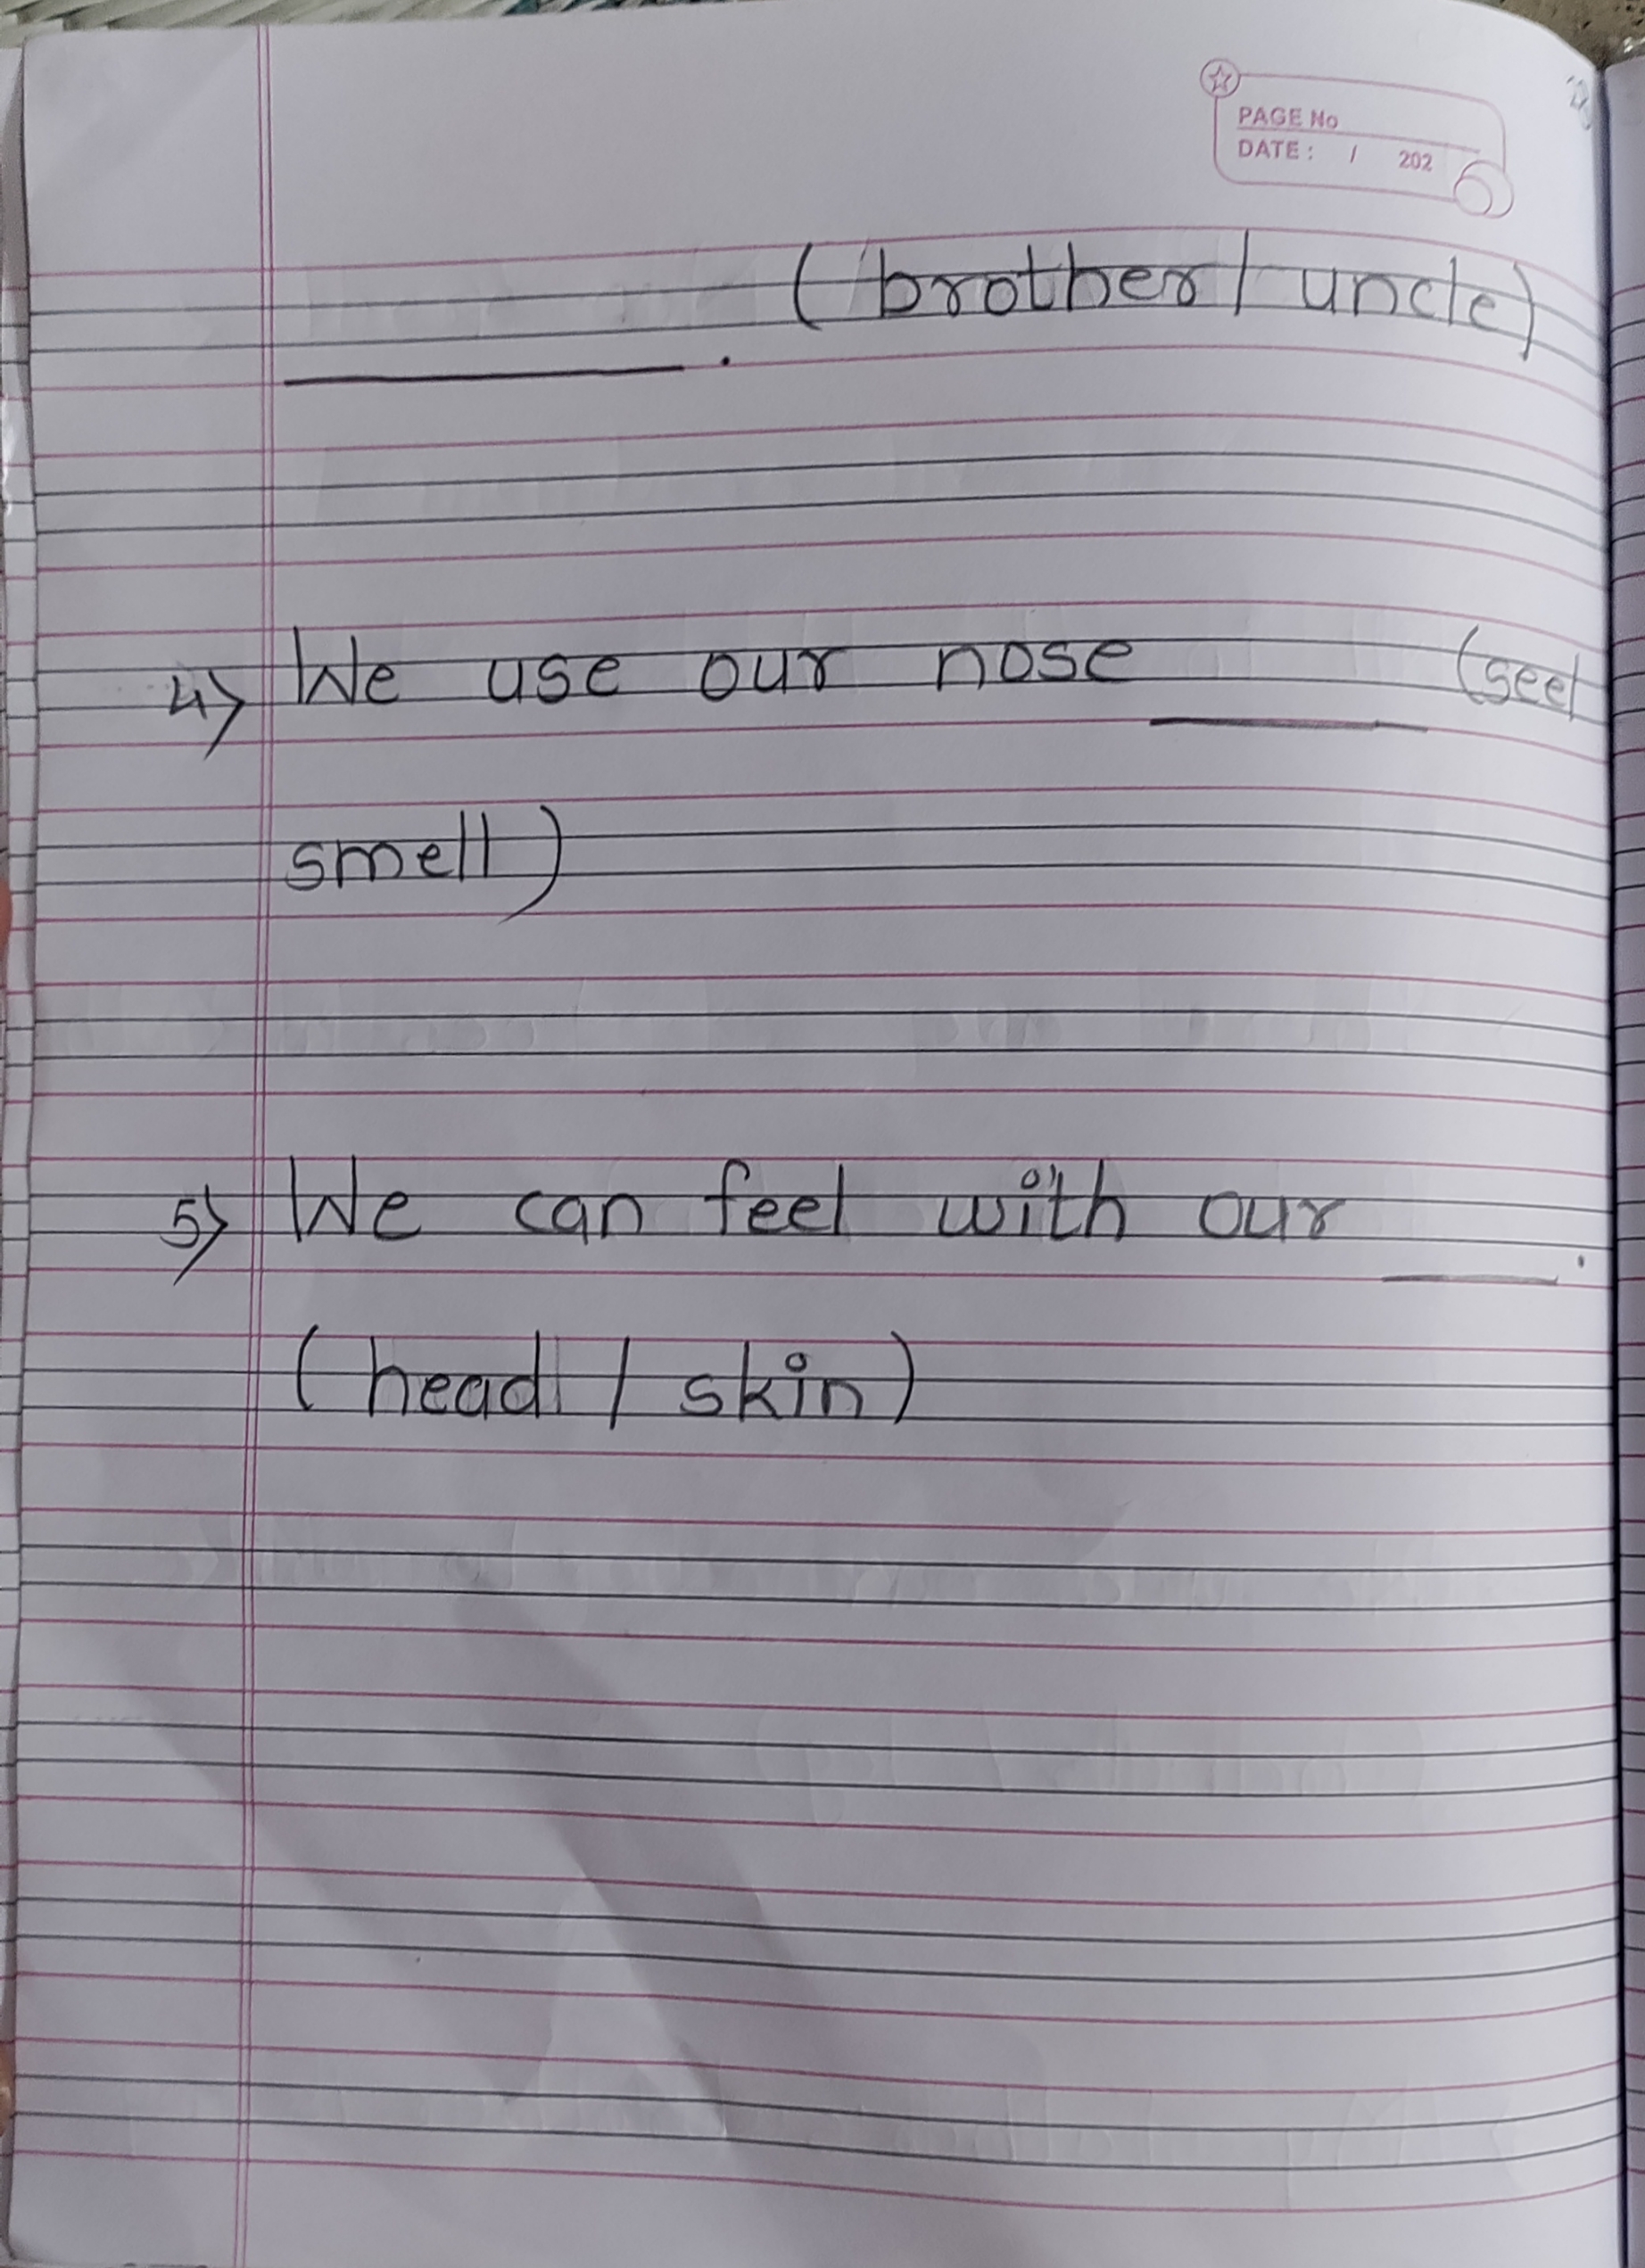 PAGE No
DATE : / 202
(brother / uncle)
________ .
4) We use our nose ______ (see/
smell)
5) We can feel with our ____ .
(head / skin)